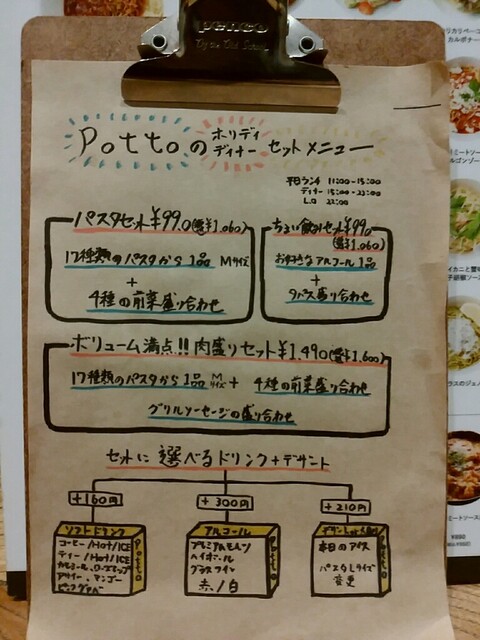 penco
Pottoの ホリディ ディナー セットメニュー
平日ランチ 11:00-15:00
ディナー 15:00-23:00
L.O 22:00
パスタセット ¥990
17種類のパスタから1品 Mサイズ
+
4種の前菜盛り合わせ
ちょい飲みセット ¥990
お好きなアルコール1品
+
タパス盛り合わせ
ボリューム満点!! 肉盛りセット ¥1,490
17種類のパスタから1品 Mサイズ + 4種の前菜盛り合わせ
グリルソーセージの盛り合わせ
セットに選べるドリンク+デザート
+160円
ソフトドリンク
コーヒー/Hot/ICE
ティー/Hot/ICE
マンゴー
Potto
+300円
アルコール
プレミアムモルツ
ハイボール
グラスワイン
赤/白
Potto
+210円
本日のアイス
パスタLサイズ
変更
Potto